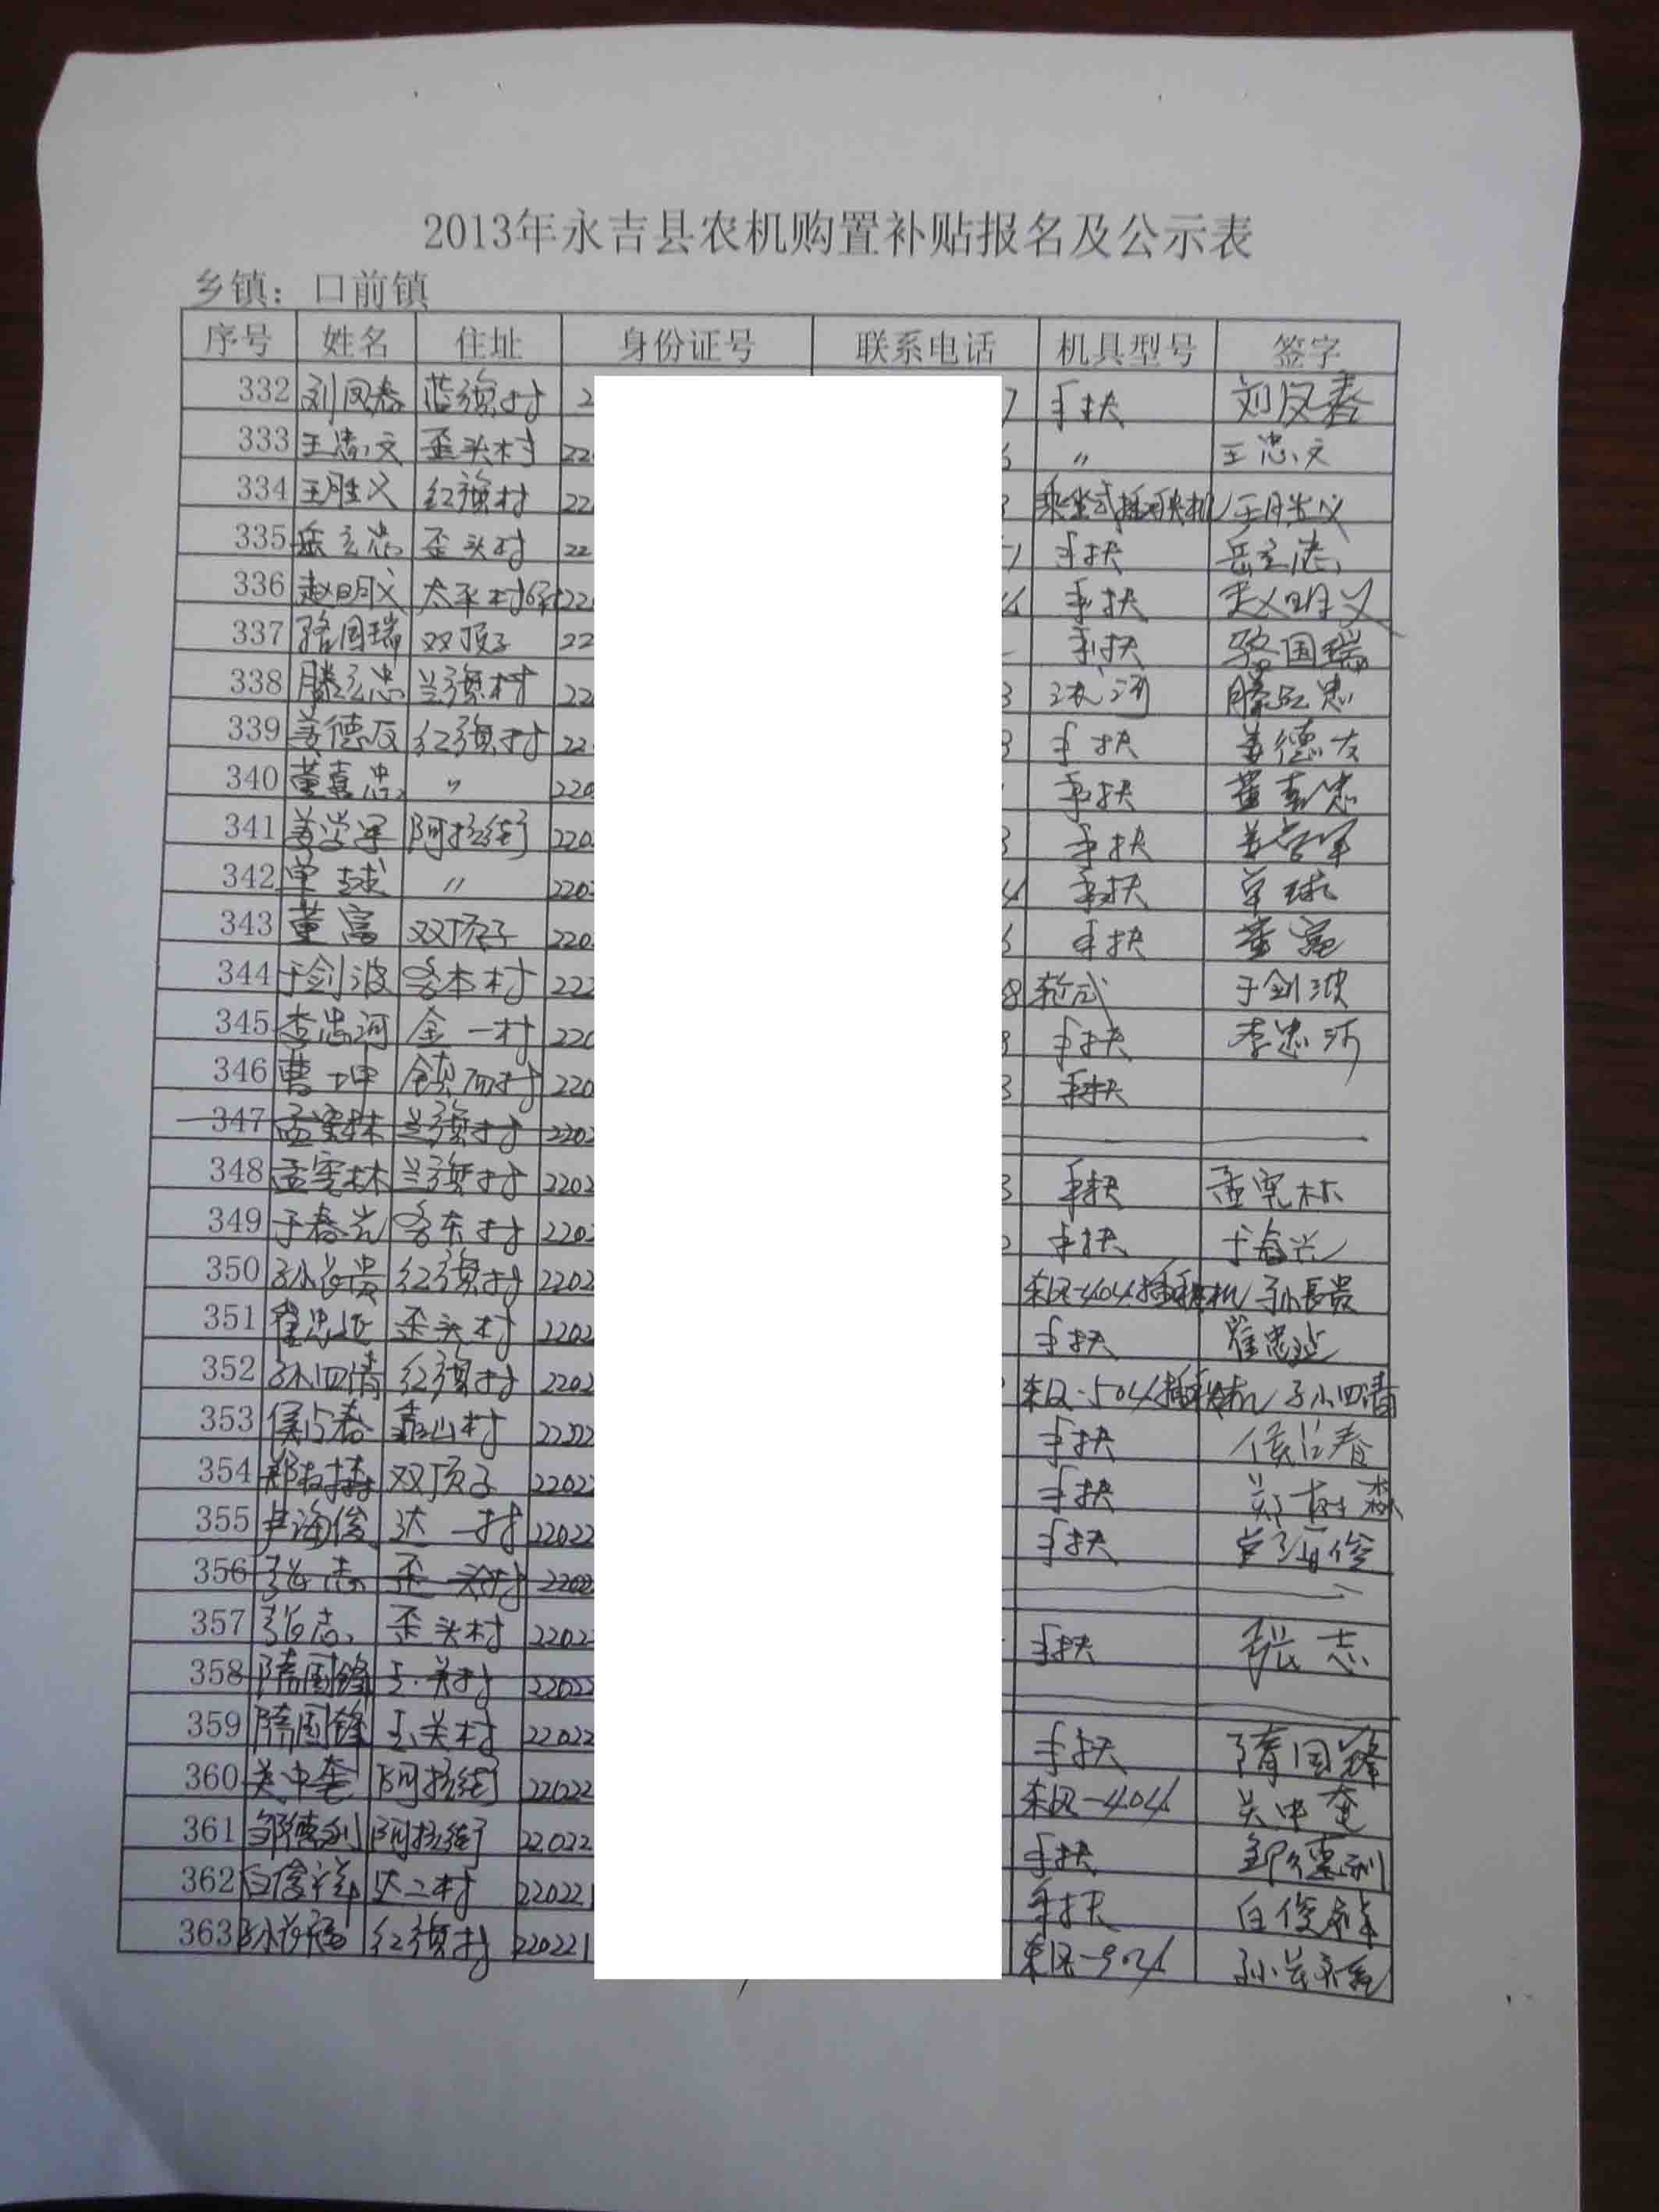 2013年永吉县农机购置补贴报名及公示表
乡镇：口前镇
序号 姓名 住址 身份证号 联系电话 机具型号 签字
332 刘凤春 蓝旗村 2 7 手扶 刘凤春
333 王忠文 歪头村 22 〃 王忠文
334 王胜义 红旗村 22 乘坐式插秧机 王胜义
335 岳立忠 歪头村 22 手扶 岳立忠
336 赵明义 太平村 22 手扶 赵明义
337 骆国瑞 双顶子 22 手扶 骆国瑞
338 滕立忠 兰旗村 22 3 滕立忠
339 姜德友 红旗村 22 手扶 姜德友
340 董喜忠 〃 220 手扶 董喜忠
341 姜学军 阿拉街 220 3 手扶 姜学军
342 单球 〃 220 4 手扶 单球
343 董富 双顶子 220 手扶 董富
344 于剑波 客本村 222 8 轮式 于剑波
345 李忠河 金一村 220 手扶 李忠河
346 曹坤 镇西村 220 3 手扶
347 孟宪林 兰旗村 2202
348 孟宪林 兰旗村 2202 3 手扶 孟宪林
349 客东村 2202 手扶
350 孙长贵 红旗村 2202 东风-404插秧机 孙長贵
351 崔忠延 歪头村 2202 手扶 崔忠延
352 孙四清 红旗村 2202 东风-504插秧机 孙四清
353 侯占春 靠山村 22022 手扶 侯占春
354 郑树森 双顶子 22022 手扶 郑树森
355 海俊 达一村 22022 手扶 海俊
356 张志 歪头村 22022
357 张志 歪头村 2202 手扶 张志
358 隋国锋 关村 22022
359 隋国锋 关村 22022 手扶 隋国锋
360 关中奎 阿拉街 22022 东风-404 关中奎
361 邹德利 阿拉街 22022 手扶 邹德利
362 白俊祥 达二村 220221 手扶 白俊祥
363 孙 红旗村 220221 东风-904 孙